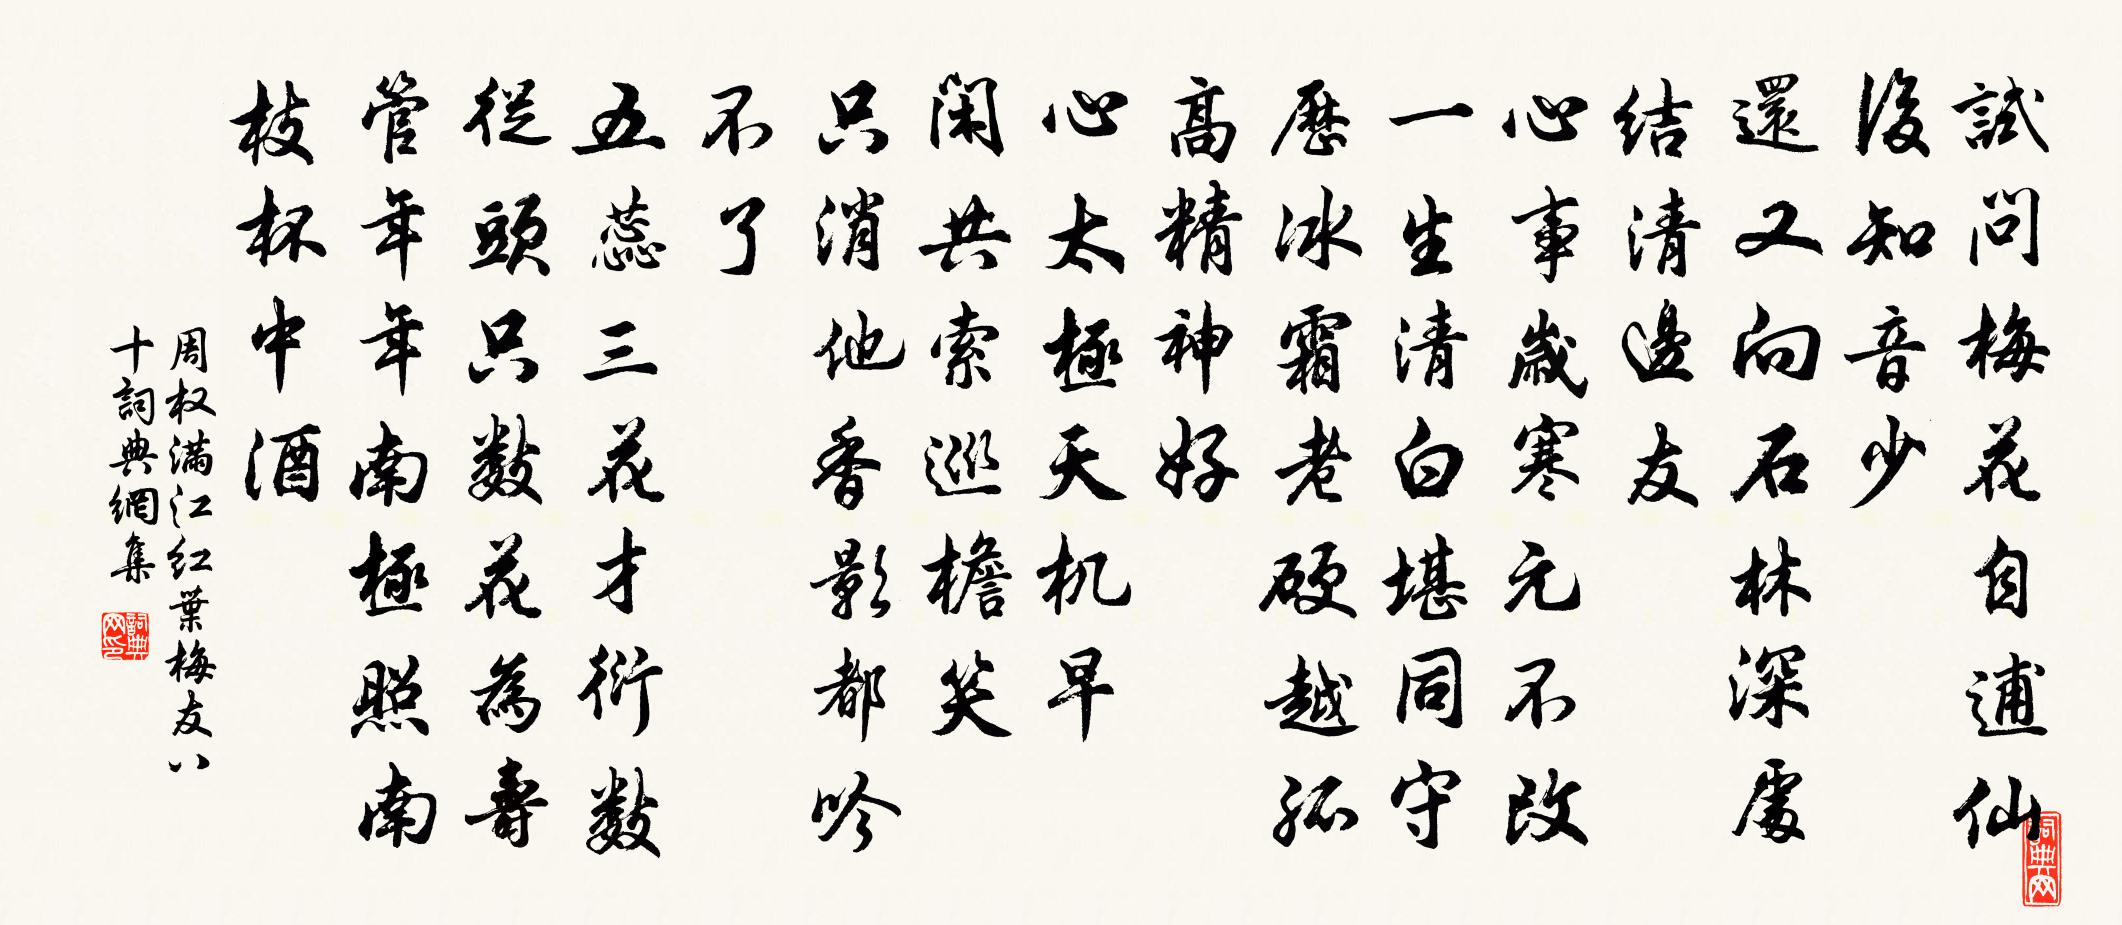 試問梅花自逋仙
後知音少
還又向石林深處
結清邊友
心事歲寒元不改
一生清白堪同守
歷冰霜老硬越孤
高精神好
心太極天机早
閑共索巡檐笑
只消他香影都吟
不了
五蕊三花才衍数
從頭只数花為壽
管年年南極照南
枝杯中酒
周权满江红葉梅友八
十詞典網集
詞典网印
詞典网